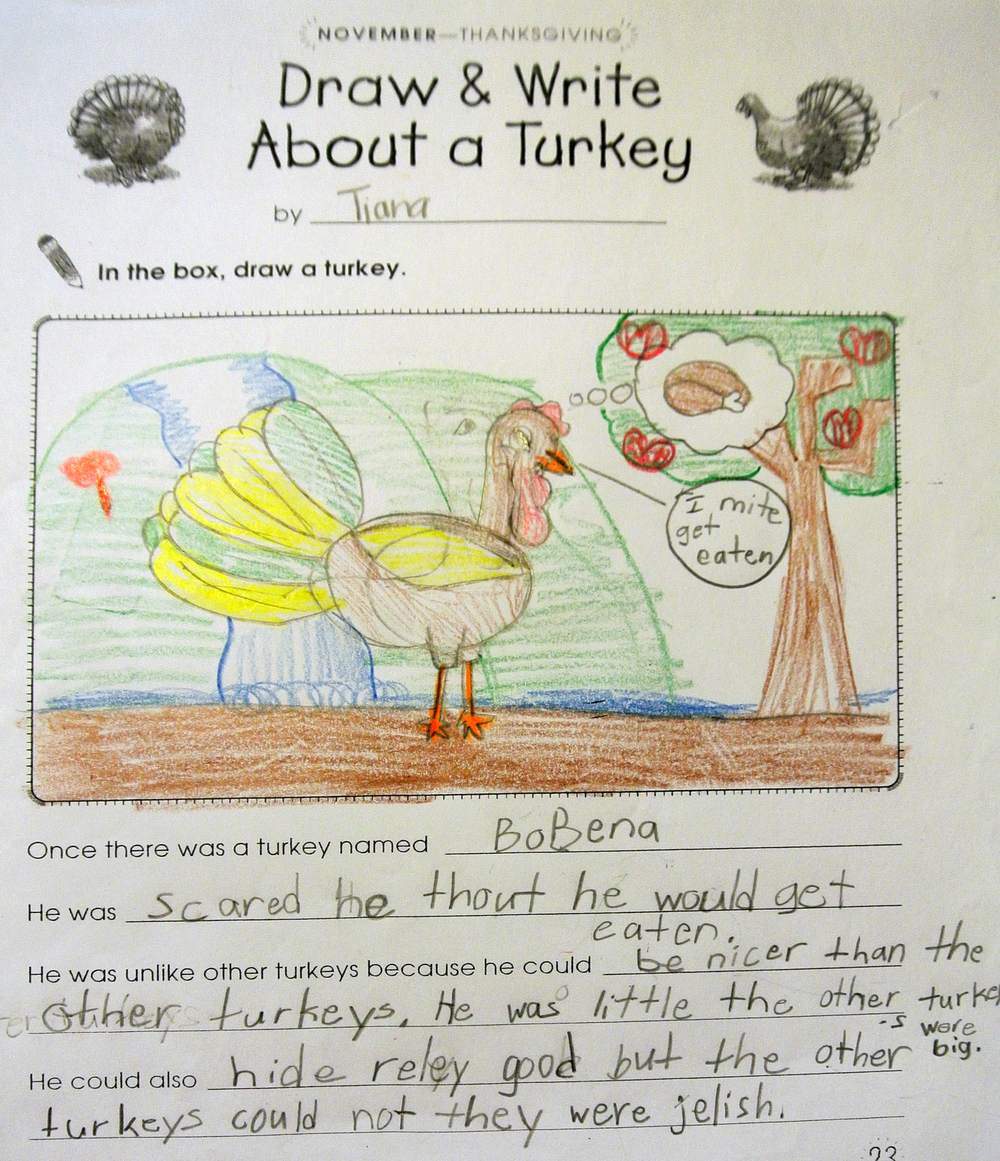 NOVEMBER—THANKSGIVING
Draw & Write
About a Turkey
by Tiana
In the box, draw a turkey.
I mite
get
eaten
Once there was a turkey named BoBena
He was scared he thout he would get
eaten.
He was unlike other turkeys because he could be nicer than the
other turkeys. He was little the other turke
-s were
big.
He could also hide reley good but the other
turkeys could not they were jelish.
23